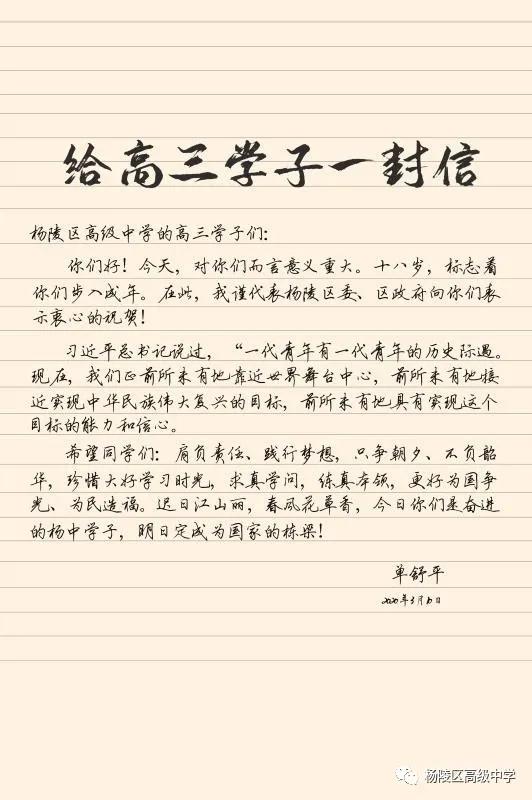 给高三学子一封信
杨陵区高级中学的高三学子们：
你们好！今天，对你们而言意义重大。十八岁，标志着
你们步入成年。在此，我谨代表杨陵区委、区政府向你们表
示衷心的祝贺！
习近平总书记说过，“一代青年有一代青年的历史际遇。
现在，我们正前所未有地靠近世界舞台中心，前所未有地接
近实现中华民族伟大复兴的目标，前所未有地具有实现这个
目标的能力和信心。
希望同学们：肩负责任、践行梦想，只争朝夕、不负韶
华，珍惜大好学习时光，求真学问，练真本领，更好为国争
光、为民造福。迟日江山丽，春风花草香，今日你们是奋进
的杨中学子，明日定成为国家的栋梁！
单舒平
2020年3月10日
杨陵区高级中学